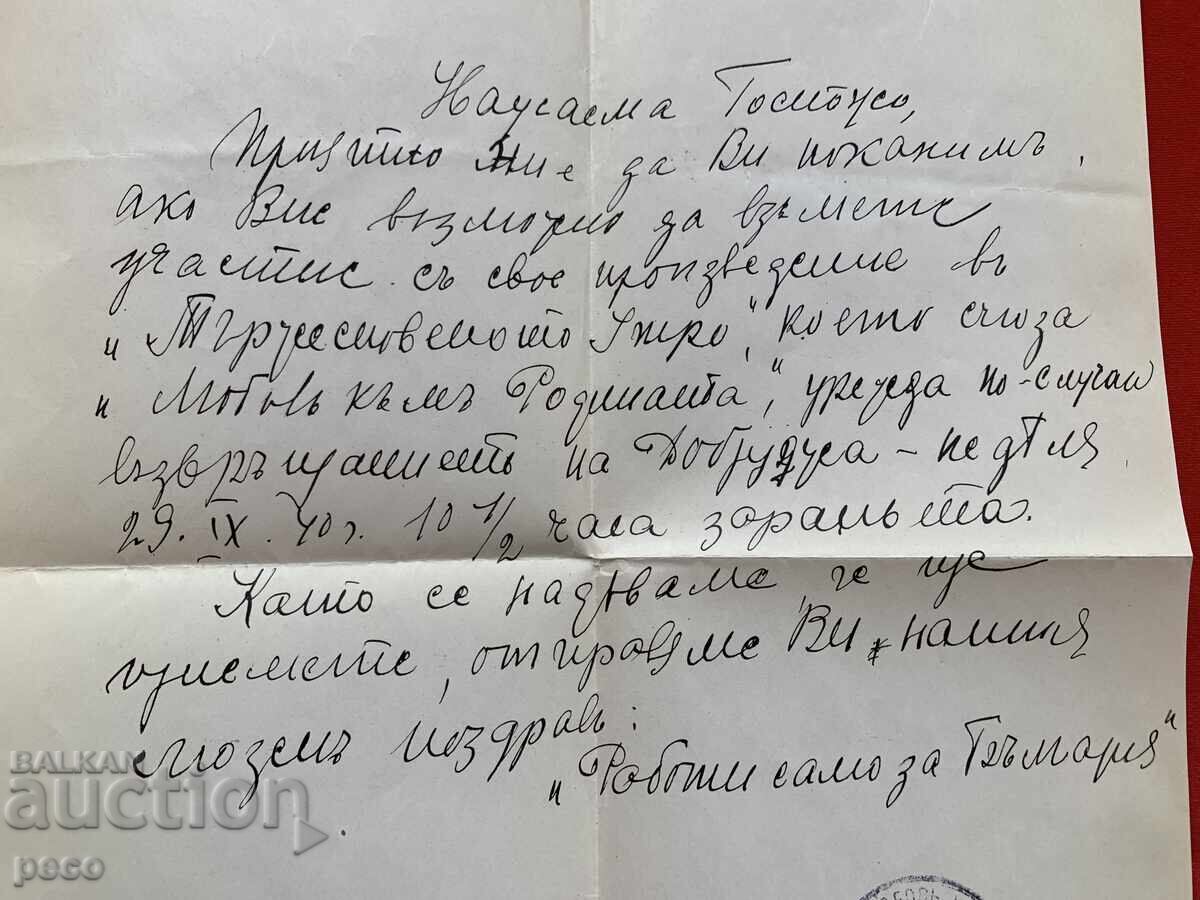 Науčаема Госпожо,
Приятно ни е да Ви поканимъ,
ако Вие възможно да вземете
участие съ свое произведение въ
„Тържественото Утро", което съюза
„Любовь къмъ Родината", урежда по-случай
възвръщанието на Добруджа - недѣля
29. IX. 40 г. 10 1/2 часа зараньта.
Като се надѣваме, че ще
приемете, отправяме Ви нашия
съюзенъ поздравъ:
„Работи само за България"
BALKAN
auction
peco